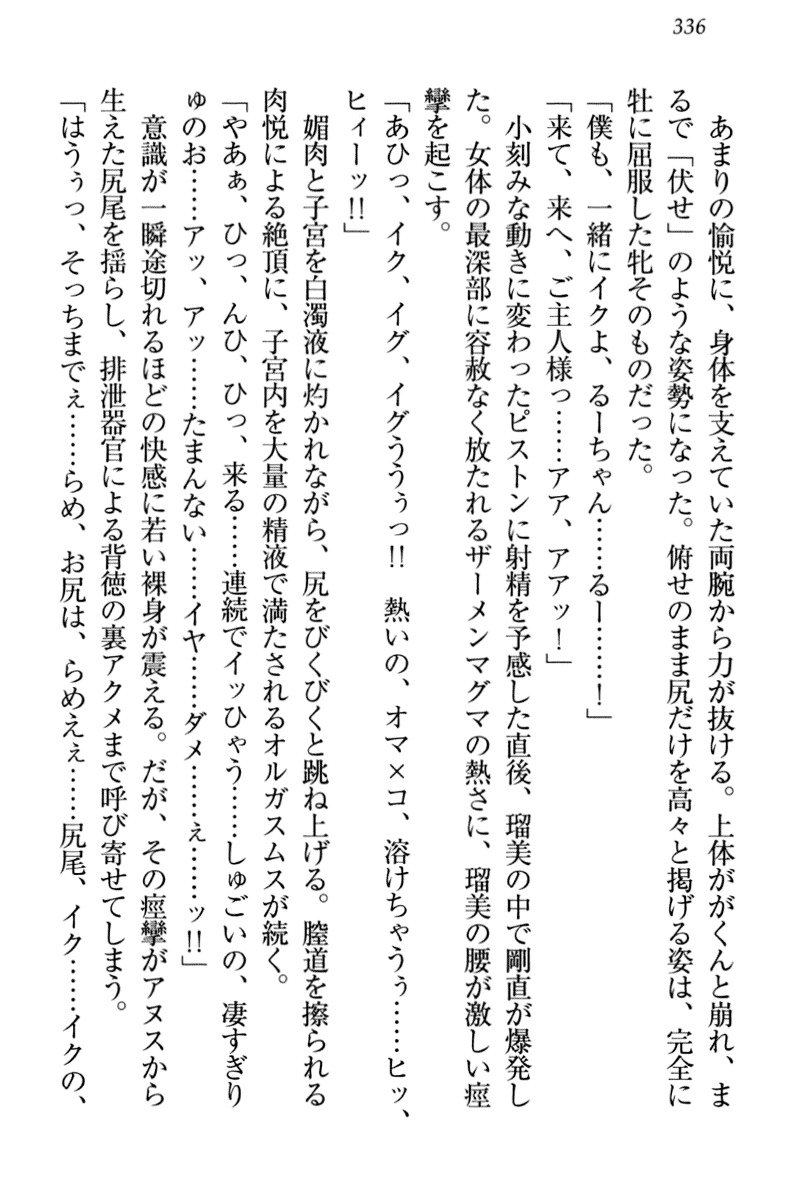 336
あまりの愉悦に、身体を支えていた両腕から力が抜ける。上体ががくんと崩れ、ま
るで「伏せ」のような姿勢になった。俯せのまま尻だけを高々と掲げる姿は、完全に
牡に屈服した牝そのものだった。
「僕も、一緒にイクよ、るーちゃん……るー……！」
「来て、来へ、ご主人様っ……アア、アアッ！」
小刻みな動きに変わったピストンに射精を予感した直後、瑠美の中で剛直が爆発し
た。女体の最深部に容赦なく放たれるザーメンマグマの熱さに、瑠美の腰が激しい痙
攣を起こす。
「あひっ、イク、イグ、イグううぅっ!!　熱いの、オマ×コ、溶けちゃうぅ……ヒッ、
ヒィーッ!!」
媚肉と子宮を白濁液に灼かれながら、尻をびくびくと跳ね上げる。膣道を擦られる
肉悦による絶頂に、子宮内を大量の精液で満たされるオルガスムスが続く。
「やあぁ、ひっ、んひ、ひっ、来る……連続でイッひゃう……しゅごいの、凄すぎり
ゅのお……アッ、アッ……たまんない……イヤ……ダメ……ぇ……ッ!!」
意識が一瞬途切れるほどの快感に若い裸身が震える。だが、その痙攣がアヌスから
生えた尻尾を揺らし、排泄器官による背徳の裏アクメまで呼び寄せてしまう。
「はうぅっ、そっちまでぇ……らめ、お尻は、らめえぇ……尻尾、イク……イクの、